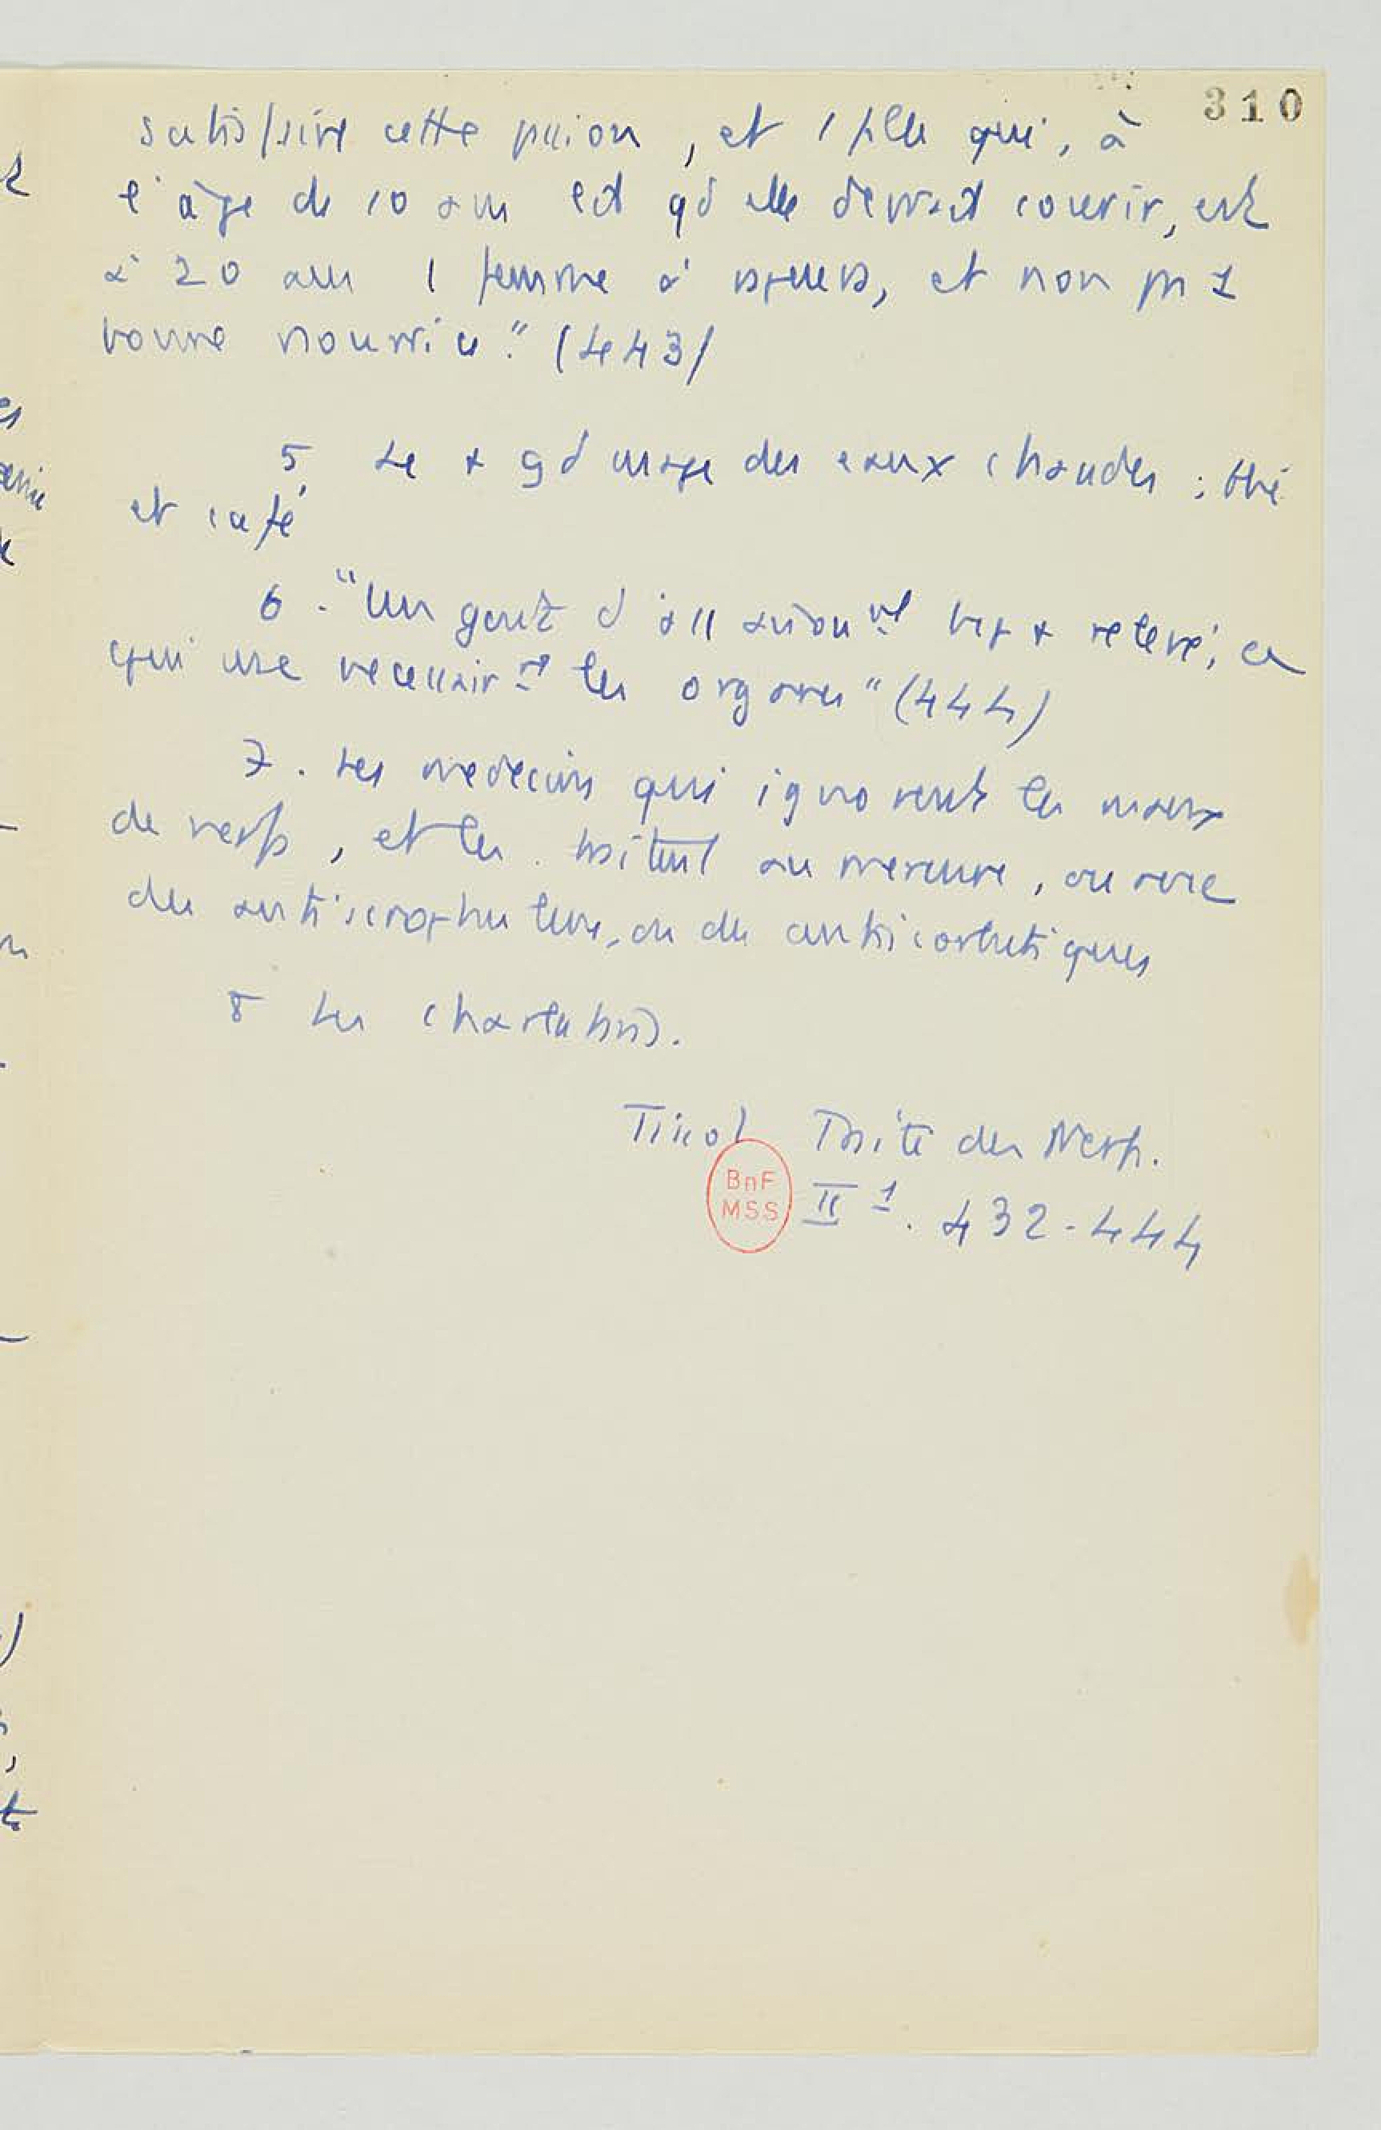 310
satisfaire cette passion, et 1 fille qui, à
l'âge de 10 ans lit qd elle devrait courir, est
à 20 ans 1 femme à vapeurs, et non pas 1
bonne nourrice." (443)
5. Le + gd usage des eaux chaudes : thé
et café
6. "Un goût d'assaisonnt bcp + relevé, ce
qui use nécessairt les organes" (444)
7. Les médecins qui ignorent les maux
de nerfs, et les traitent au mercure, ou avec
des antiscrophuleux, ou des antiscorbutiques
8 Les charlatans.
Tissot Traité des Nerfs.
II 1. 432-444
BnF
MSS